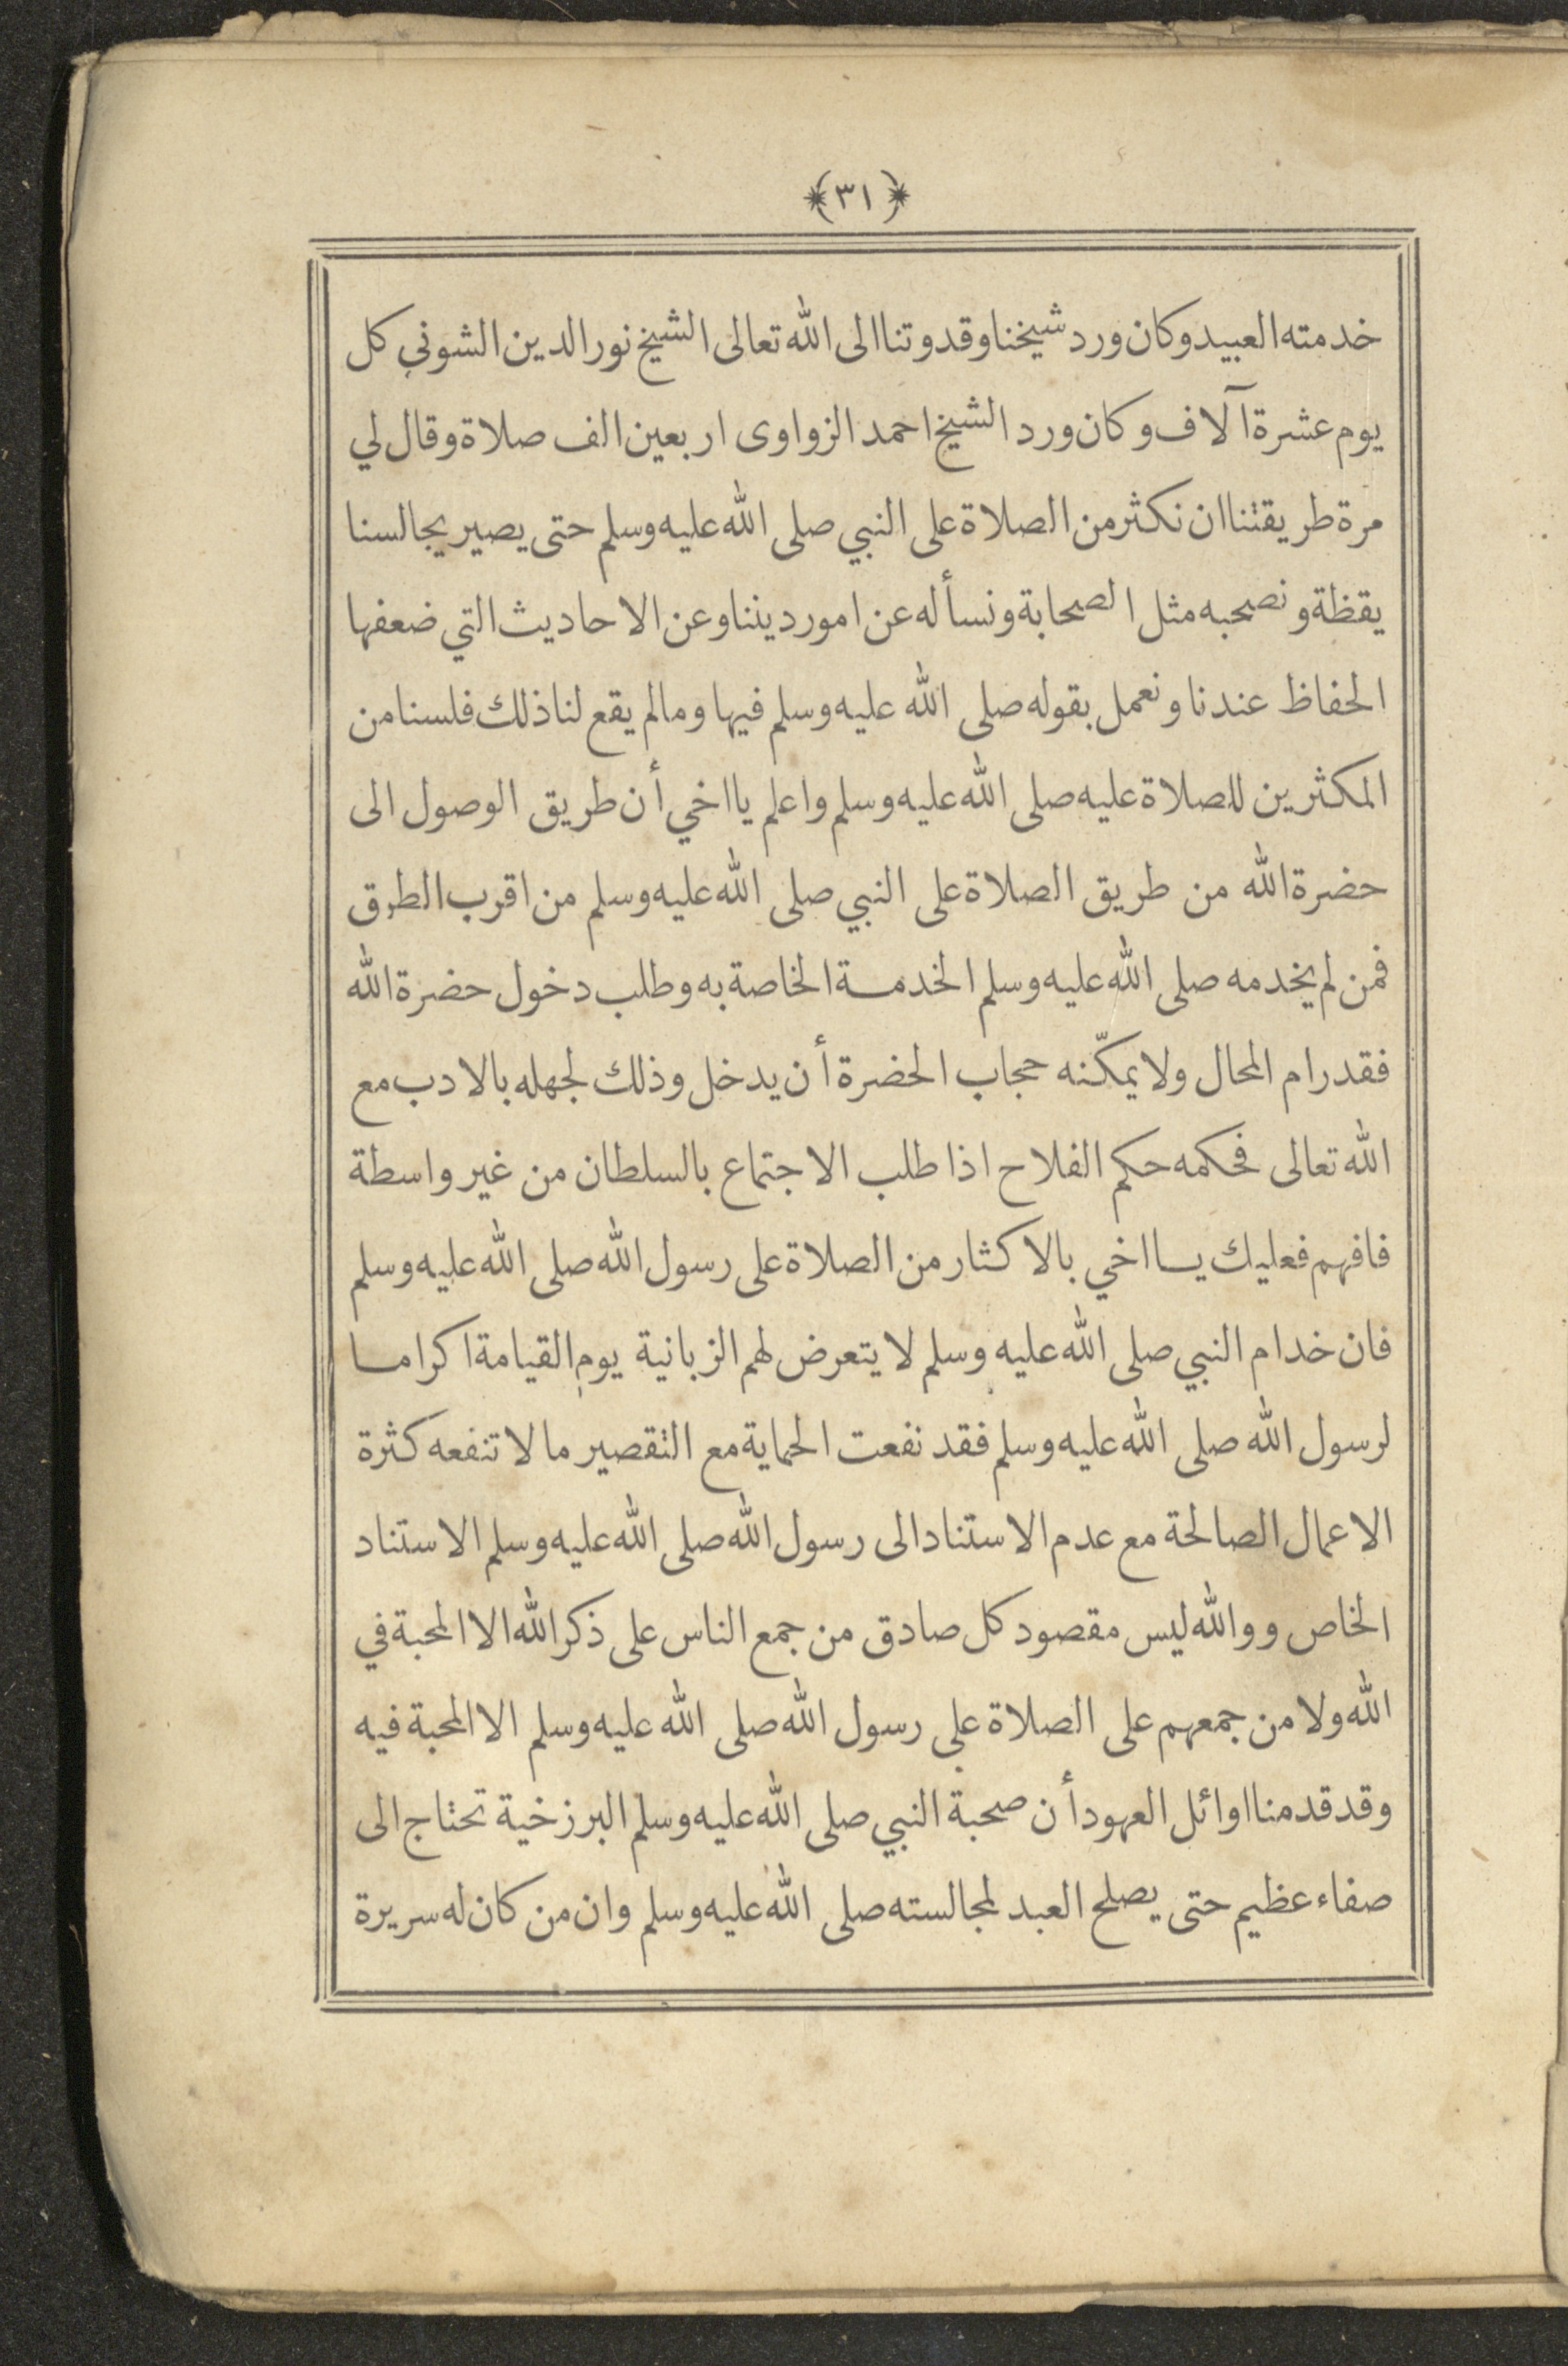 ﴿٣١﴾
خدمته العبيد وكان ورد شيخنا وقدوتنا الى الله تعالى الشيخ نور الدين الشوني كل
يوم عشرة آلاف وكان ورد الشيخ احمد الزواوى اربعين الف صلاة وقال لي
مرة طريقتنا ان نكثر من الصلاة على النبي صلى الله عليه وسلم حتى يصير يجالسنا
يقظة ونصحبه مثل الصحابة ونسأله عن امور ديننا وعن الاحاديث التي ضعفها
الحفاظ عندنا ونعمل بقوله صلى الله عليه وسلم فيها ومالم يقع لنا ذلك فلسنا من
المكثرين للصلاة عليه صلى الله عليه وسلم واعلم يا اخي أن طريق الوصول الى
حضرة الله من طريق الصلاة على النبي صلى الله عليه وسلم من اقرب الطرق
فمن لم يخدمه صلى الله عليه وسلم الخدمة الخاصة به وطلب دخول حضرة الله
فقد رام المحال ولا يمكّنه حجاب الحضرة أن يدخل وذلك لجهله بالادب مع
الله تعالى فحكمه حكم الفلاح اذا طلب الاجتماع بالسلطان من غير واسطة
فافهم فعليك يا اخي بالاكثار من الصلاة على رسول الله صلى الله عليه وسلم
فان خدام النبي صلى الله عليه وسلم لا يتعرض لهم الزبانية يوم القيامة اكراما
لرسول الله صلى الله عليه وسلم فقد نفعت الحماية مع التقصير ما لا تنفعه كثرة
الاعمال الصالحة مع عدم الاستناد الى رسول الله صلى الله عليه وسلم الاستناد
الخاص ووالله ليس مقصود كل صادق من جمع الناس على ذكر الله الا المحبة في
الله ولا من جمعهم على الصلاة على رسول الله صلى الله عليه وسلم الا المحبة فيه
وقد قدمنا اوائل العهود أن صحبة النبي صلى الله عليه وسلم البرزخية تحتاج الى
صفاء عظيم حتى يصلح العبد لمجالسته صلى الله عليه وسلم وان من كان له سريرة